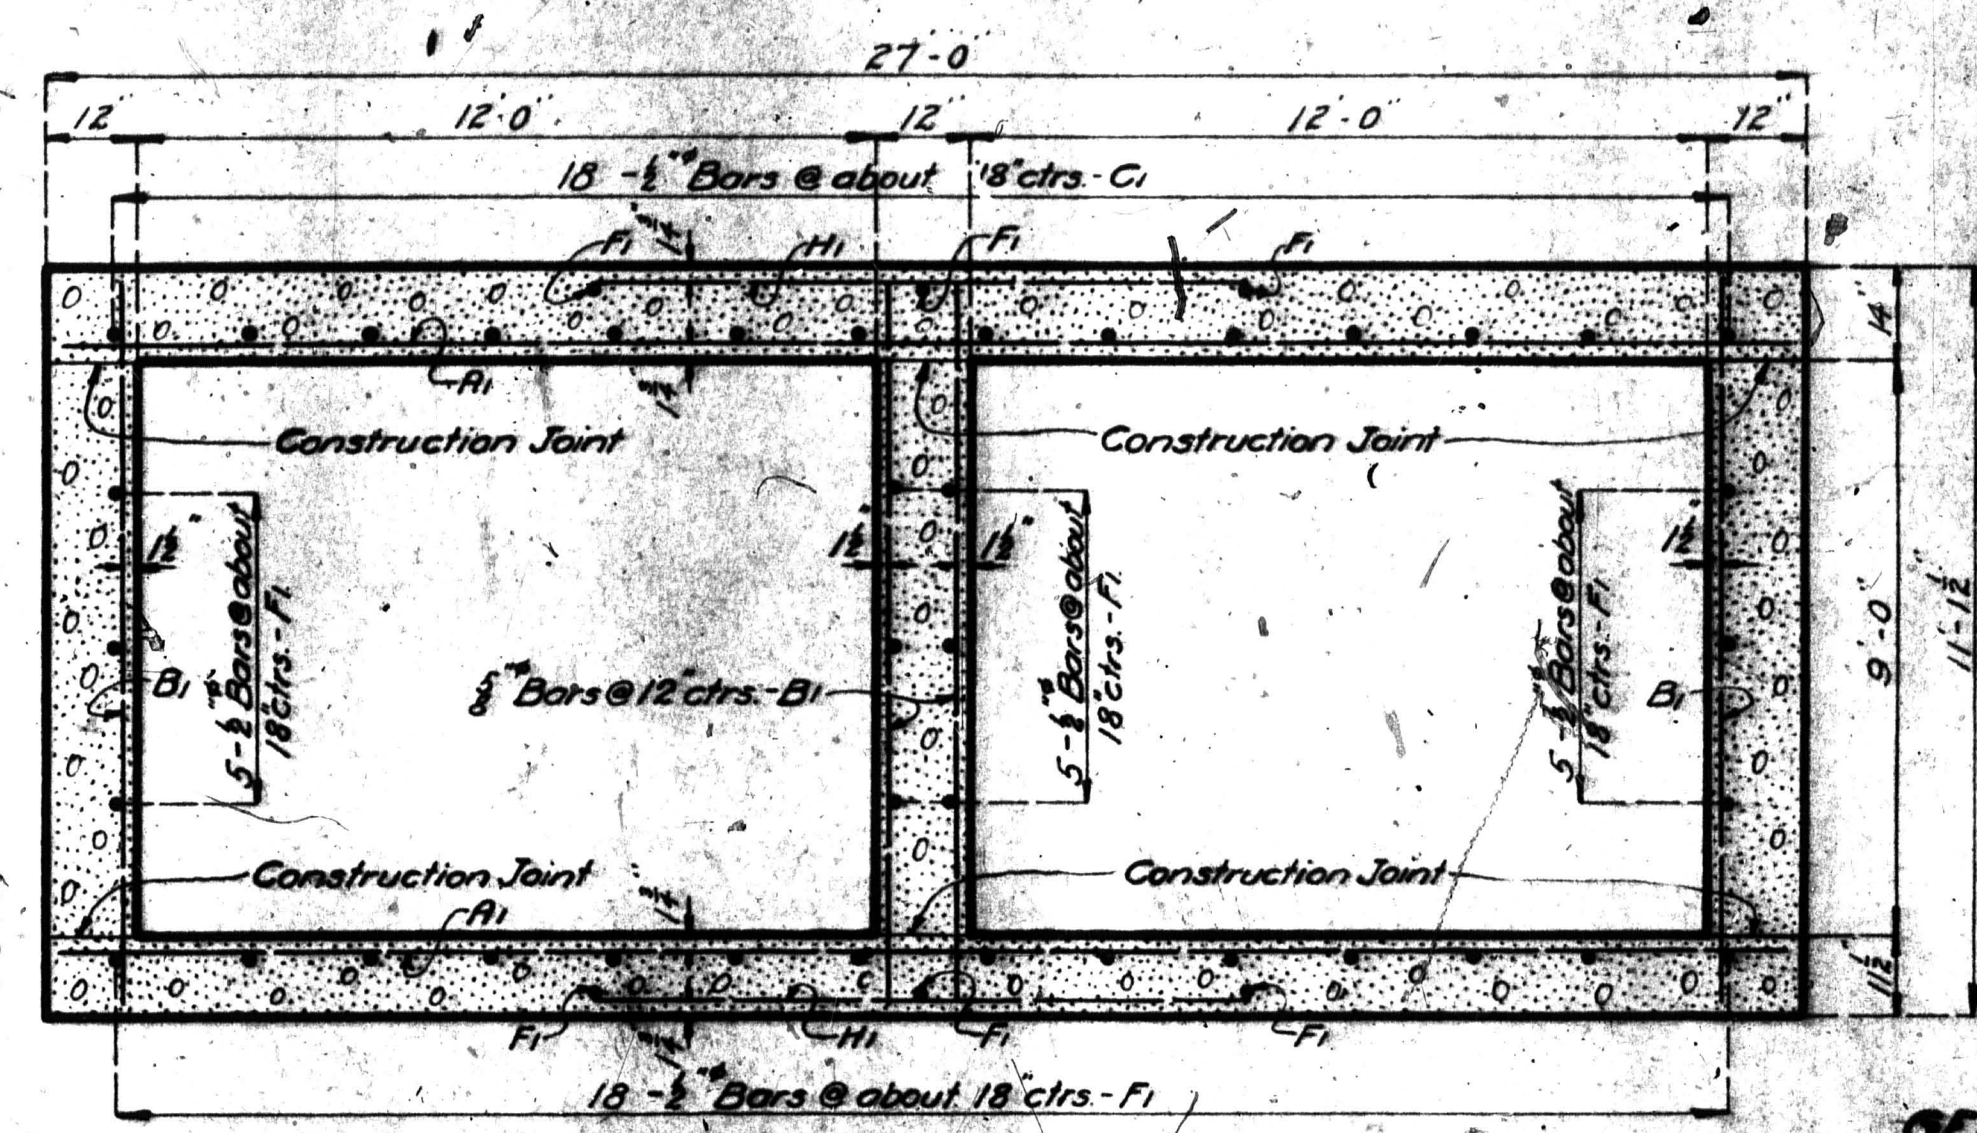 27'-0"
12" 12'-0" 12" 12'-0" 12"
18 - ½"ø Bars @ about 18" ctrs. - C1
F1 1¾" H1 F1 F1
14"
A1 1¾"
Construction Joint Construction Joint
1½" 1½" 1½" 1½"
5 - ½"ø Bars @ about
18" ctrs. - F1
5 - ½"ø Bars @ about
18" ctrs. - F1
5 - ½"ø Bars @ about
18" ctrs. - F1
9'-0"
11'-1½"
B1 ⅝"ø Bars @ 12" ctrs. - B1 B1
Construction Joint Construction Joint
1¾"
A1
11½"
F1 1¾" H1 F1 F1
18 - ½"ø Bars @ about 18" ctrs. - F1